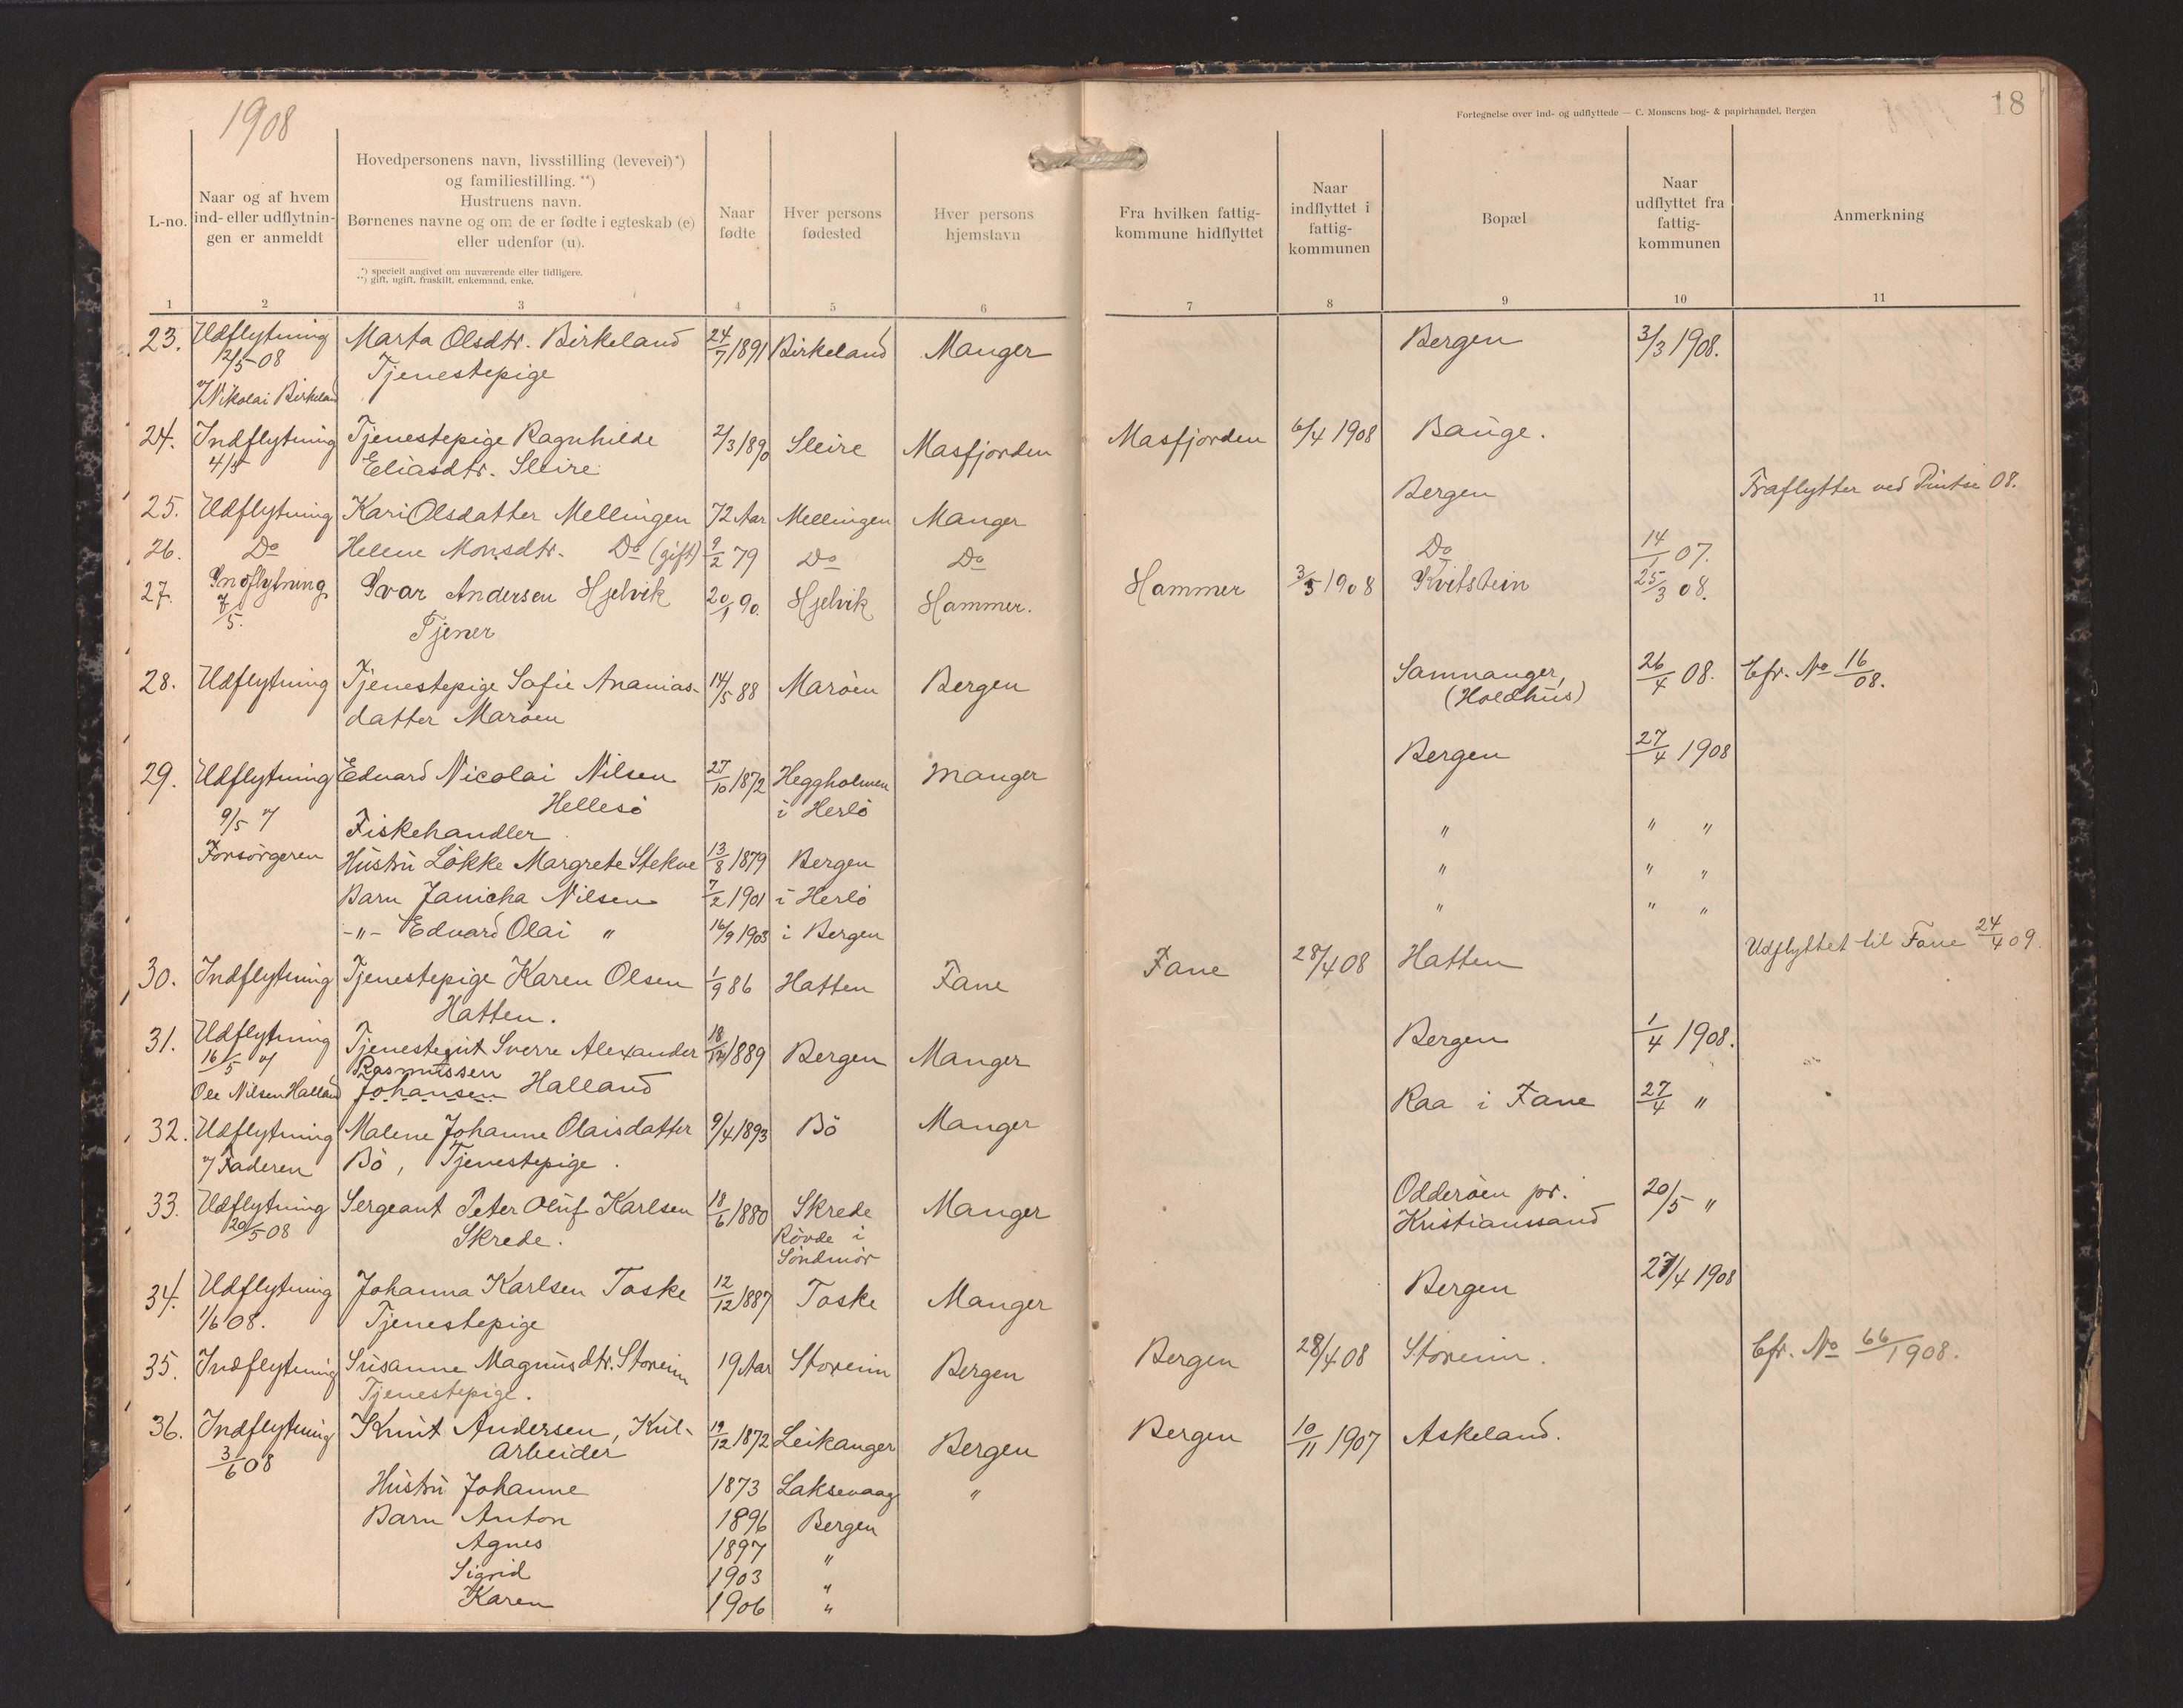 1908
18
Fortegnelse over ind- og udflyttede — C. Monsens bog- & papirhandel, Bergen
L-no.
Naar og af hvem
ind- eller udflytnin-
gen er anmeldt
Hovedpersonens navn, livsstilling (levevei)*)
og familiestilling. **)
Hustruens navn.
Børnenes navne og om de er fødte i egteskab (e)
eller udenfor (u).
*) specielt angivet om nuværende eller tidligere.
**) gift, ugift, fraskilt, enkemand, enke.
Naar
fødte
Hver persons
fødested
Hver persons
hjemstavn
Fra hvilken fattig-
kommune hidflyttet
Naar
indflyttet i
fattig-
kommunen
Bopæl
Naar
udflyttet fra
fattig-
kommunen
Anmerkning
1 2 3 4 5 6 7 8 9 10 11
23. Udflytning Marta Olsdtr. Birkeland 24/7 1891 Birkeland Manger Bergen 3/3 1908.
12/5-08 Tjenestepige
v/ Nikolai Birkeland
24. Indflytning Tjenestepige Ragnhilde 2/3 1890 Sleire Masfjorden Masfjorden 6/4 1908 Bauge.
Eliasdtr. Sleire
25. Udflytning Kari Olsdatter Mellingen 72 Aar Mellingen Manger Bergen Fraflytter ved Pintse 08.
26. Do Helene Monsdtr. Do (gift) 9/2 79 Do Do Do 14/1 07.
27. Indflytning Ivar Andersen Hjelvik 20/1 90. Hjelvik Hammer. Hammer 3/5 1908 Kvitstein 25/3 08.
7/5. Tjener
28. Udflytning Tjenestepige Sofie Ananias- 14/5 88 Marøen Bergen Samnanger, 26/4 08. Cfr. No 16/08.
datter Marøen (Holdhus)
29. Udflytning Edvard Nicolai Nilsen 27/10 1872 Heggholmen Manger Bergen 27/4 1908
Hellesö i Herlö
9/5 v/ Fiskehandler " " "
Forsörgeren Hustru Lökke Margrete Stekve 13/8 1879 Bergen " " "
Barn Janicha Nilsen 7/2 1901 i Herlö " " "
-"- Edvard Olai " 16/9 1903 i Bergen
30. Indflytning Tjenestepige Karen Olsen 1/9 86 Hatten Fane Fane 28/4 08 Hatten Udflyttet til Fane 24/4 09.
Hatten.
31. Udflytning Tjenestegut Sverre Alexander 18/12 1889 Bergen Manger Bergen 1/4 1908.
16/5 v/ Rasmussen
Ole Nilsen Halland Johansen Halland
32. Udflytning Malene Johanne Olaisdatter 9/4 1893 Bö Manger Raa i Fane 27/4 "
v/ Faderen Bö, Tjenestepige.
33. Udflytning Sergeant Peter Oluf Karlsen 18/6 1880 Skrede Manger Odderöen pr. 20/5 "
20/5 08 Skrede. Rövde i Kristianssand
Söndmör
34. Udflytning Johanna Karlsen Toske 12/12 1887 Toske Manger Bergen 27/4 1908
1/6 08. Tjenestepige
35. Indflytning Susanne Magnusdtr. Storeim 19 Aar Storeim Bergen Bergen 28/4 08 Storeim. Cfr. No 66/1908.
Tjenestepige.
36. Indflytning Knut Andersen, Kul- 19/12 1872 Leikanger Bergen Bergen 10/11 1907 Askeland.
3/6 08 arbeider
Hustru Johanne 1873 Laksevaag "
Barn Anton 1896 Bergen
Agnes 1897 "
Sigrid 1903 "
Karen 1906 "